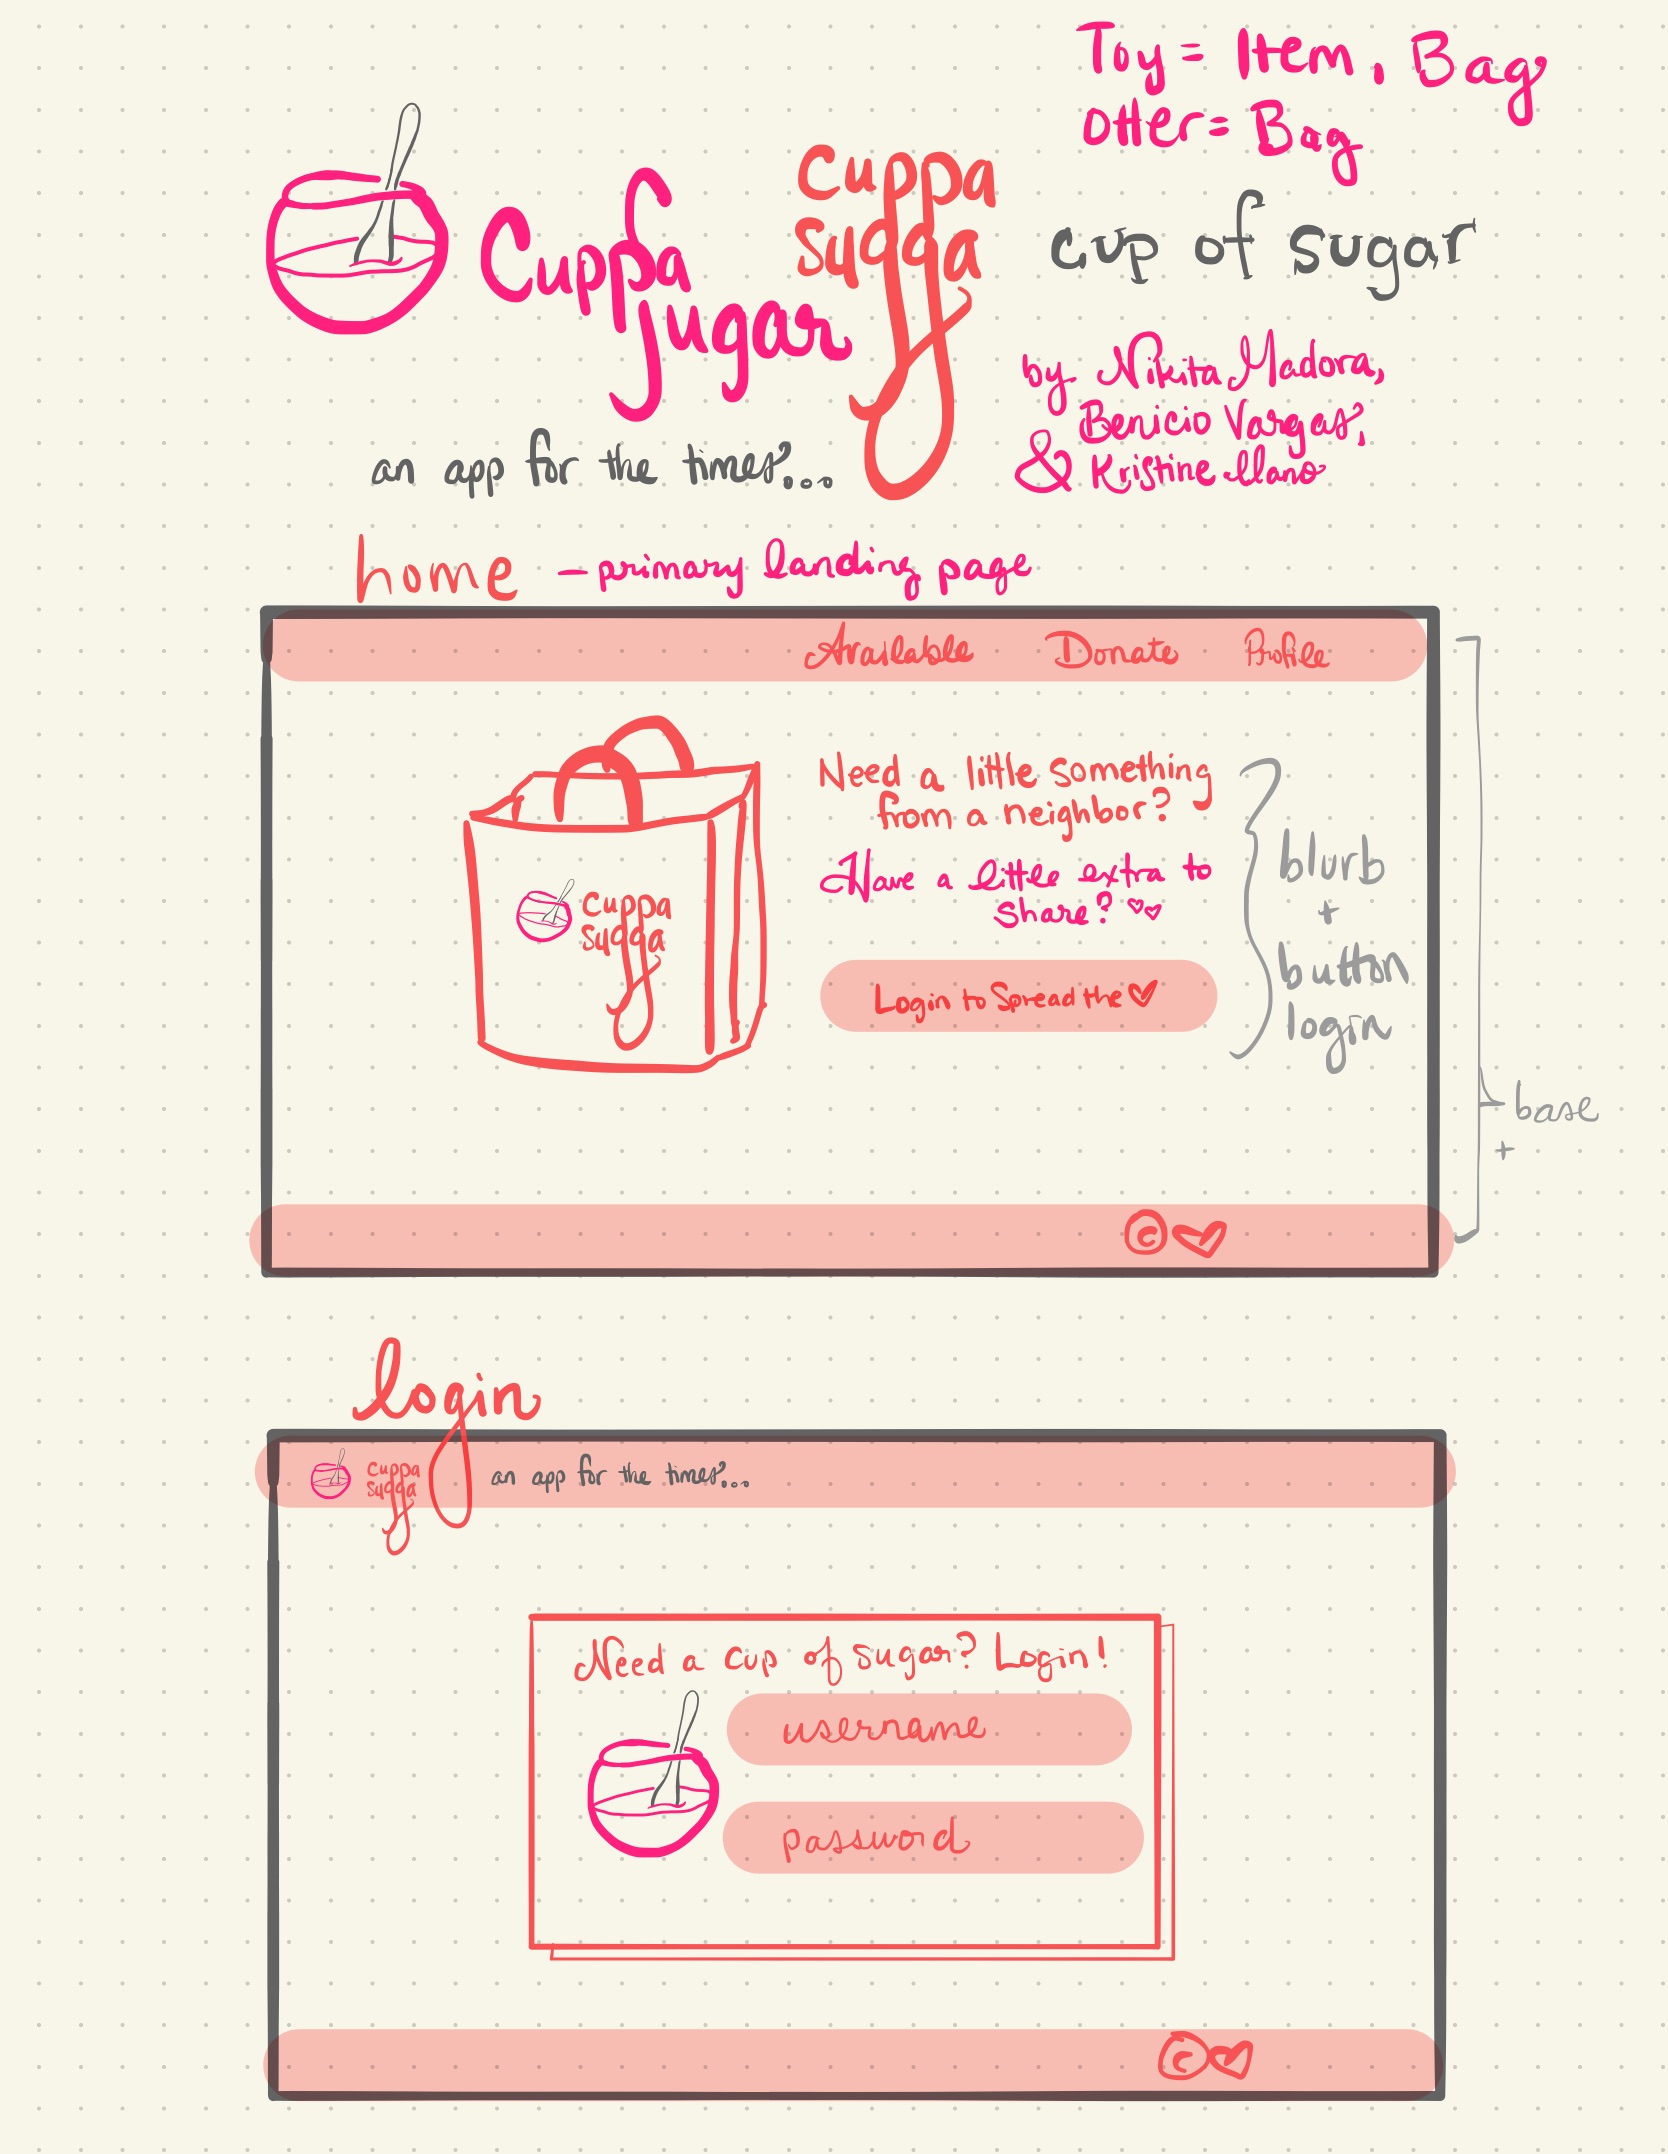 Toy = Item, Bag
otter = Bag
Cuppa
jugar
cuppa
sugga
cup of sugar
by Nikita Madora,
Benicio Vargas,
& Kristine llano
an app for the times...
home - primary landing page
Available Donate Profile
Need a little something
from a neighbor?
Have a little extra to
share? ♡♡
cuppa
sugga
Login to Spread the ♡
blurb
+
button
login
base
+
© ♡
login
cuppa
sugga
an app for the times...
Need a cup of sugar? Login!
username
password
© ♡